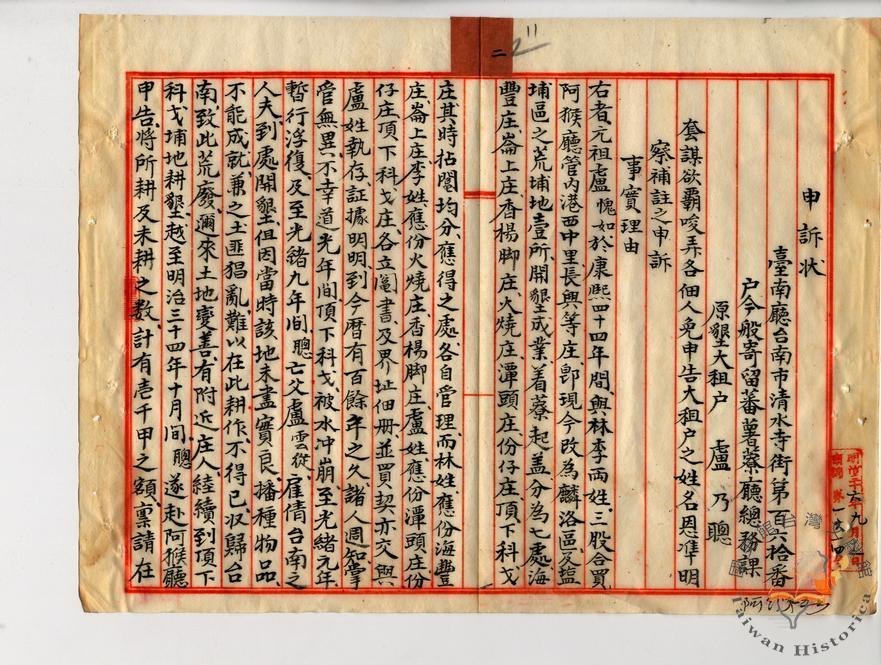 二
11
申訴狀
臺南廳台南市清水寺街第百六拾番
户今般寄留蕃薯藔廳總務課
原墾大租户 盧乃聰
套謀欲霸唆弄各佃人免申告大租户之姓名恩准明
察補註之申訴
事實理由
右者元祖盧愧如於康熙四十四年間與林李両姓三股合買
阿猴廳管内港西中里長興等庄即現今改為麟洛區及塩
埔區之荒埔地壹所開墾成業着藔起盖分為七處海
豐庄崙上庄香楊脚庄火燒庄潭頭庄份仔庄頂下科戈
庄其時拈鬮均分應得之處各自管理而林姓應份海豐
庄崙上庄李姓應份火燒庄香楊脚庄盧姓應份潭頭庄份
仔庄頂下科戈庄各立鬮書及界址佃册並買契亦交與
盧姓執存証據明明到今曆有百餘年之久諸人週知掌
管無異不幸道光年間頂下科戈被水冲崩至光緒元年
暫行浮復及至光緒九年間聰亡父盧雲從雇倩台南之
人夫到處開墾但因當時該地未盡實良播種物品
不能成就兼之土匪猖亂難以在此耕作不得已収歸台
南致此荒廢邇來土地变善有附近庄人継續到頂下
科戈埔地耕墾越至明治三十四年十月間聰遂赴阿猴廳
申告將所耕及未耕之数計有壱千甲之額稟請在
Taiwan Historica